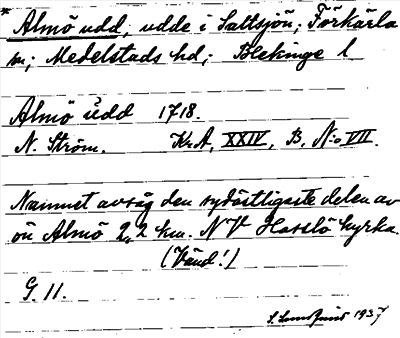 * Almö udd, udde i Saltsjön; Förkärla
sn; Medelstads hd; Blekinge l
Almö udd 1718.
N. Ström. Kr.A, XXIV, B, N:o VII.
Namnet avsåg den sydöstligaste delen av
ön Almö 2,2 km. NV Hasslö kyrka.
(Vänd!)
G. 11.
S. Lundqvist 1937